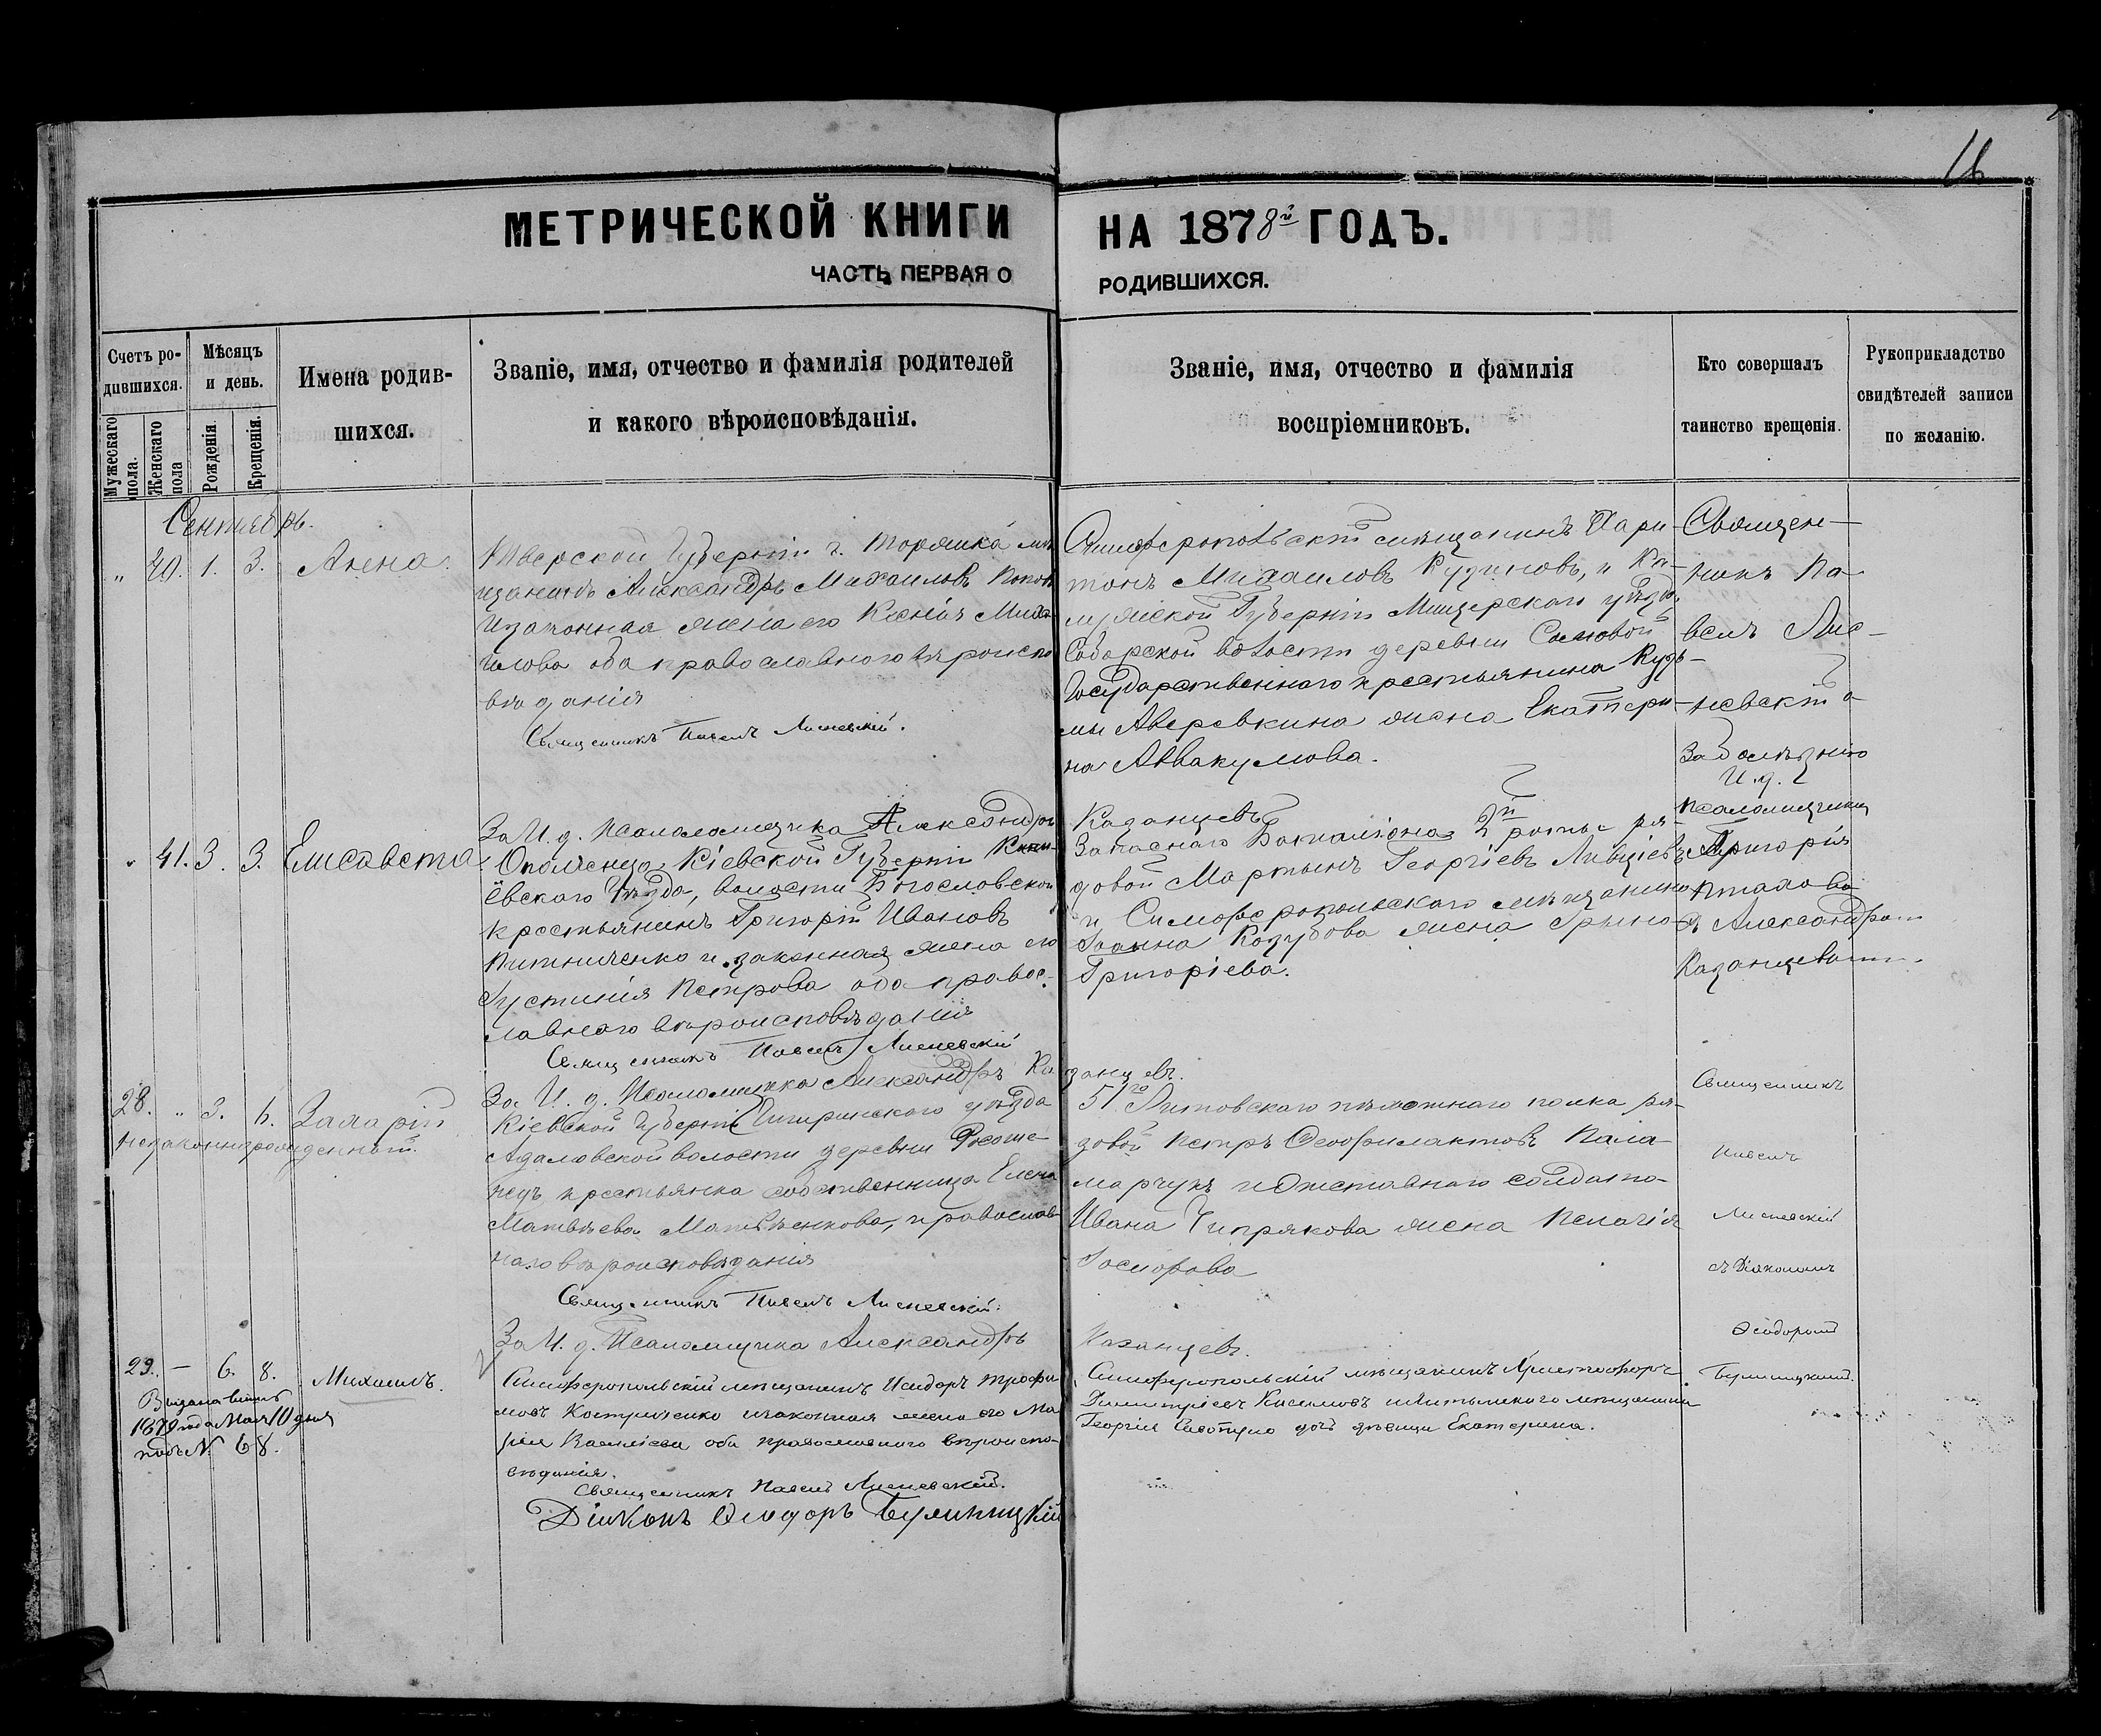 16
МЕТРИЧЕСКОЙ КНИГИ НА 1878й ГОДЪ.
ЧАСТЬ ПЕРВАЯ О РОДИВШИХСЯ.
Счетъ ро-
дившихся.
Мужескаго
пола.
Женскаго
пола
Мѣсяцъ
и день.
Рожденія.
Крещенія.
Имена родив-
шихся.
Званіе, имя, отчество и фамилія родителей
и какого вѣроисповѣданія.
Званіе, имя, отчество и фамилія
воспріемниковъ.
Кто совершалъ
таинство крещенія.
Рукоприкладство
свидѣтелей записи
по желанію.
Сентябрь.
„ 40. 1. 3. Анна.
Тверской Губерніи г. Торжка мѣ
щанинъ Александръ Михаиловъ Поповъ
и законная жена его Ксенія Миха
илова оба православного вѣроиспо
вѣданія
Священникъ Павелъ Лисневскій.
За И. д. Псаломщика Александръ
Казанцевъ
Симферопольскій мѣщанинъ Хари-
тонъ Михаиловъ Кузиновъ, и Ка-
лужской Губерніи Мищерскаго уѣзда,
волости деревни
Государственнаго крестьянина Кузь-
мы Аверевкина жена Екатери-
на Аввакумова.
Священ-
никъ Па-
велъ Лис-
невскій
„ 41. 3. 3. Елисавета
Ополченца Кіевской Губерніи
евскаго Уѣзда, волости Богословской
крестьянинъ Григорій Ивановъ
Питниченко и законная жена его
Іустинія Петрова оба правос-
лавного вѣроисповѣданія
Священникъ Павелъ Лисневскій
За И. д. Псаломщика Александръ Ка
занцевъ.
Запаснаго Баталіона 2й роты ря-
довой Мартынъ Георгіевъ
и Симферопольскаго мѣщанина
Іоанна Козубова жена Ирина
Григоріева.
И. д.
псаломщика
Григорія
съ Александромъ
Казанцевымъ.
28. „ 3. 6. Захарій
незаконнорожденный.
Кіевской Губерніи Чигиринскаго уѣзда
Адамовской волости деревни
крестьянка собственница Елена
Матвѣева Матвѣенкова, православ
наго вѣроисповѣданія
Священникъ Павелъ Лисневскій.
За И. д. Псаломщика Александръ
Казанцевъ.
51го Литовскаго пѣхотнаго полка ря-
довой Петръ Ѳеофилактовъ Пала-
марчукъ и отставнаго солдата
Ивана Чипрякова жена Пелагія
Іосифова
Священникъ
Павелъ
Лисневскій
съ Діакономъ
Ѳеодоромъ
Бужницкимъ.
29. — 6. 8. Михаилъ.
Выдана
1879 года Мая 10 дня
подъ N 68.
Симферопольскій мѣщанинъ Исидоръ Трофи
мовъ Костриченко и законная жена его Ма
рія Василіева оба православного вѣроиспо-
вѣданія.
Священникъ Павелъ Лисневскій.
Діаконъ Ѳеодоръ Бужницкій
Симферопольскій мѣщанинъ Христофоръ
Димитріевъ Касимовъ и мѣщанина
Георгія дочь дѣвица Екатерина.